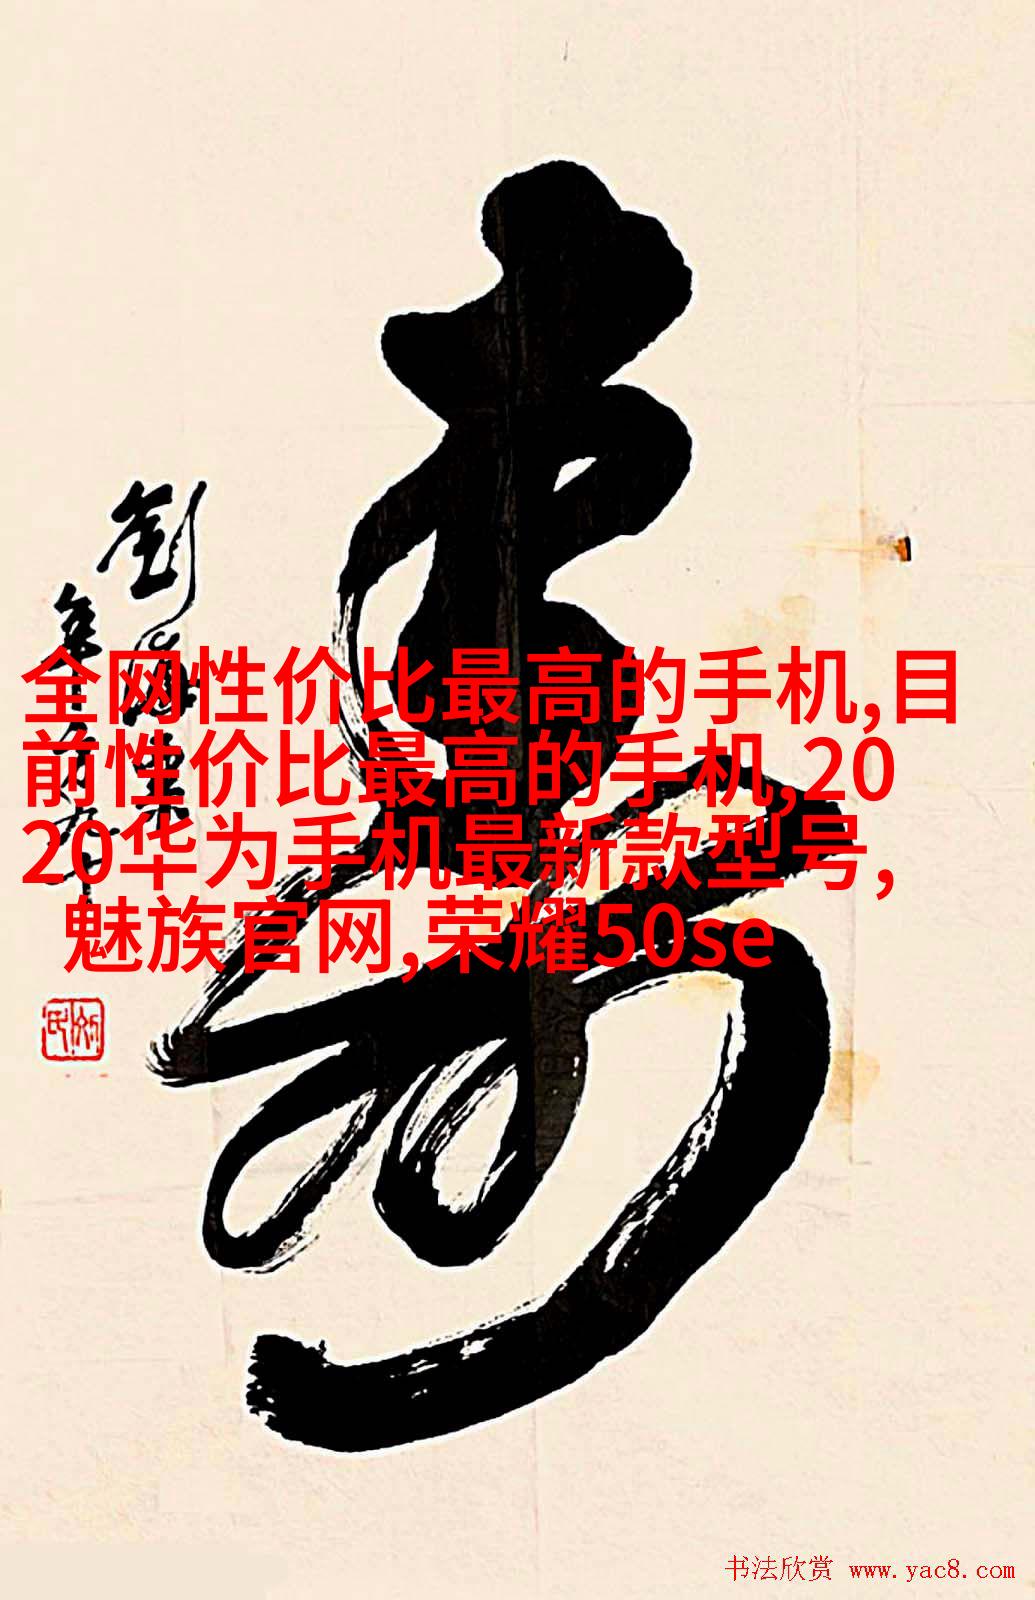 寿
劉海粟
年方九十
全网性价比最高的手机,目
前性价比最高的手机,20
20华为手机最新款型号,
魅族官网,荣耀50se
书法欣赏 www.yac8.com